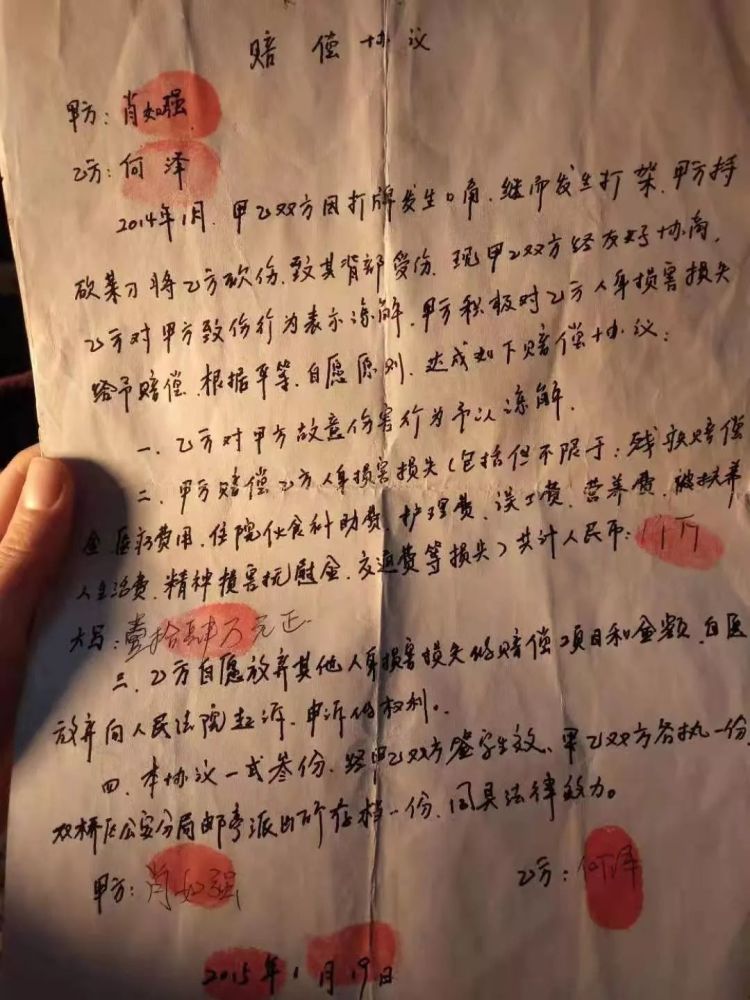 赔偿协议
甲方:肖如强
乙方:何泽
2014年1月,甲乙双方因打牌发生口角,继而发生打架,甲方持
砍菜刀将乙方砍伤,致其背部受伤,现甲乙双方经友好协商,
乙方对甲方致伤行为表示谅解,甲方积极对乙方人身损害损失
给予赔偿,根据平等、自愿愿则,达成如下赔偿协议:
一、乙方对甲方故意伤害行为予以谅解.
二、甲方赔偿乙方人身损害损失(包括但不限于:残疾赔偿
金、医疗费用、住院伙食补助费、护理费、误工费、营养费、被扶养
人生活费、精神损害抚慰金、交通费等损失)共计人民币:
大写:壹拾肆万元正
三、乙方自愿放弃其他人身损害损失的赔偿项目和金额,自愿
放弃向人民法院起诉、申诉的权利。
四、本协议一式叁份,经甲乙双方签字生效、甲乙双方各执一份,
双桥区公安分局邮亭派出所存档一份,同具法律效力。
甲方:肖如强
乙方:何泽
2015年1月19日